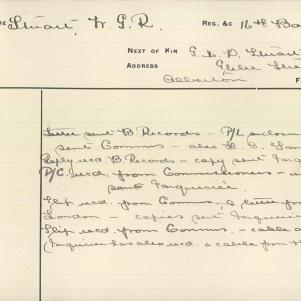 Stuart, W. G. R. REG. &c 16th Ba
NEXT OF KIN G. & D. Stuart
ADDRESS Glebe Stre
Alberton
F
Letter sent B Records – P/L enclosed
sent Commns – also H. C. Lon
Reply recd. B Records – copy sent Inquirer
P/C recd. from Commissioners –
sent Inquirer.
Slip recd. from Comns, & letter from
London – copies sent Inquirer
Slip recd. from Comns. – cable
Inquirer has also recd. a cable from th